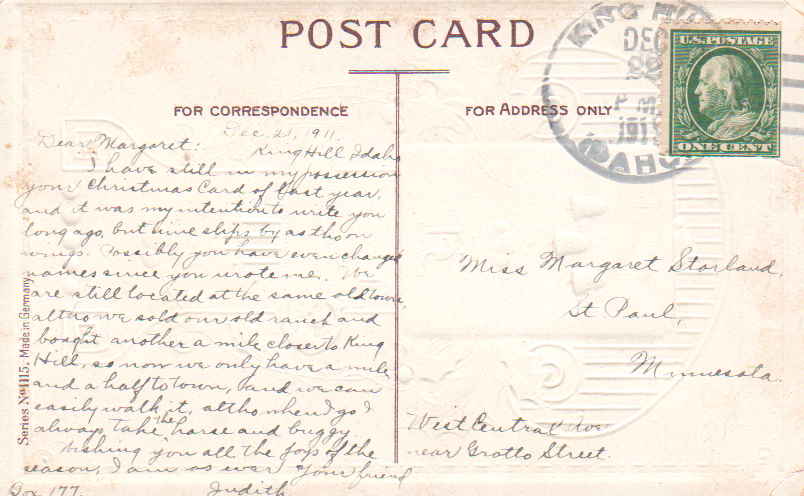 POST CARD
FOR CORRESPONDENCE
Dec. 21, 1911.
King Hill Idaho
Dear Margaret:
I have still in my possession
your Christmas Card of last year,
and it was my intention to write you
long ago, but time slips by as tho on
wings. Possibly you have even changed
names since you wrote me. We
are still located at the same old town,
altho we sold our old ranch and
bought another a mile closer to King
Hill, so now we only have a mile
and a half to town, and we can
easily walk it, altho when I go I
always take the horse and buggy.
Wishing you all the joys of the
season, I am as ever Your friend
Box 177. Judith
Series No 1115. Made in Germany
FOR ADDRESS ONLY
KING HILL
DEC
22
P M
IDAHO
U.S. POSTAGE
ONE CENT
Miss Margaret Storland,
St Paul,
Minnesota.
West Central Ave
near Grotto Street.